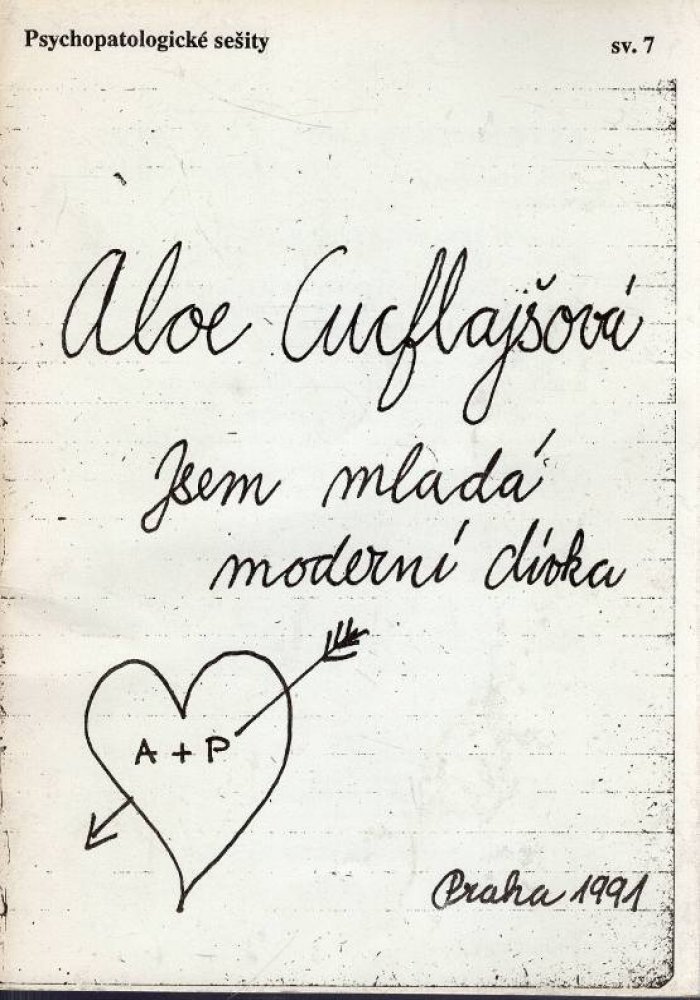 Psychopatologické sešity
sv. 7
Aloe Cucflajšová
Jsem mladá
moderní dívka
A + P
Praha 1991